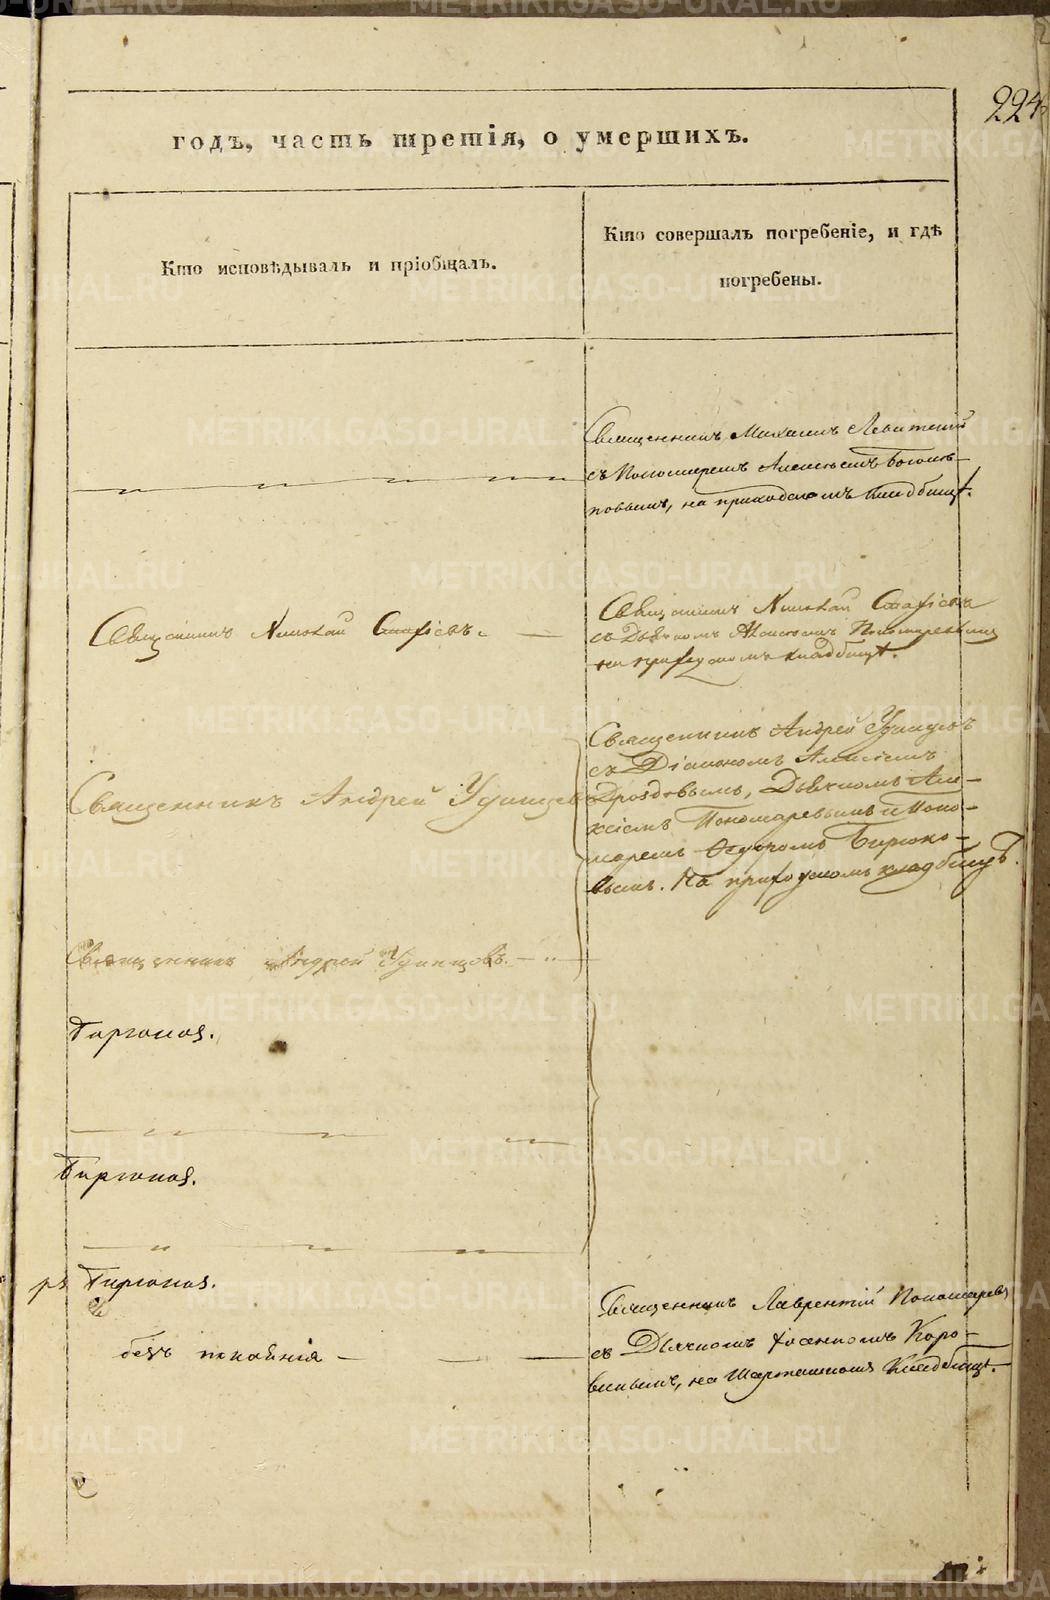 224
годъ, часть третія, о умершихъ.
Кто исповѣдывалъ и пріобщалъ.
Кто совершалъ погребеніе, и гдѣ
погребены.
Священникъ Михаилъ Левитскій
съ Пономаремъ Алексѣемъ
на приходскомъ кладбищѣ.
Священникъ Николай
Священникъ Николай
съ Дьячкомъ Алексѣемъ Пономаревымъ
на приходскомъ кладбищѣ.
Священникъ Андрей Удинцевъ
Священникъ Андрей Удинцовъ
съ Діакономъ Алексіемъ
Дроздовымъ, Дьячкомъ Але-
ксіемъ Пономаревымъ и Поно-
маремъ Ѳедоромъ Бирюко-
вымъ. На приходскомъ кладбищѣ.
Священникъ Андрей Удинцовъ.
безъ покаянія
Священникъ Лаврентій Пономаревъ
съ Дьячкомъ Іоанномъ Коро-
на Шарташскомъ Кладбищѣ.
METRIKI.GASO-URAL.RU